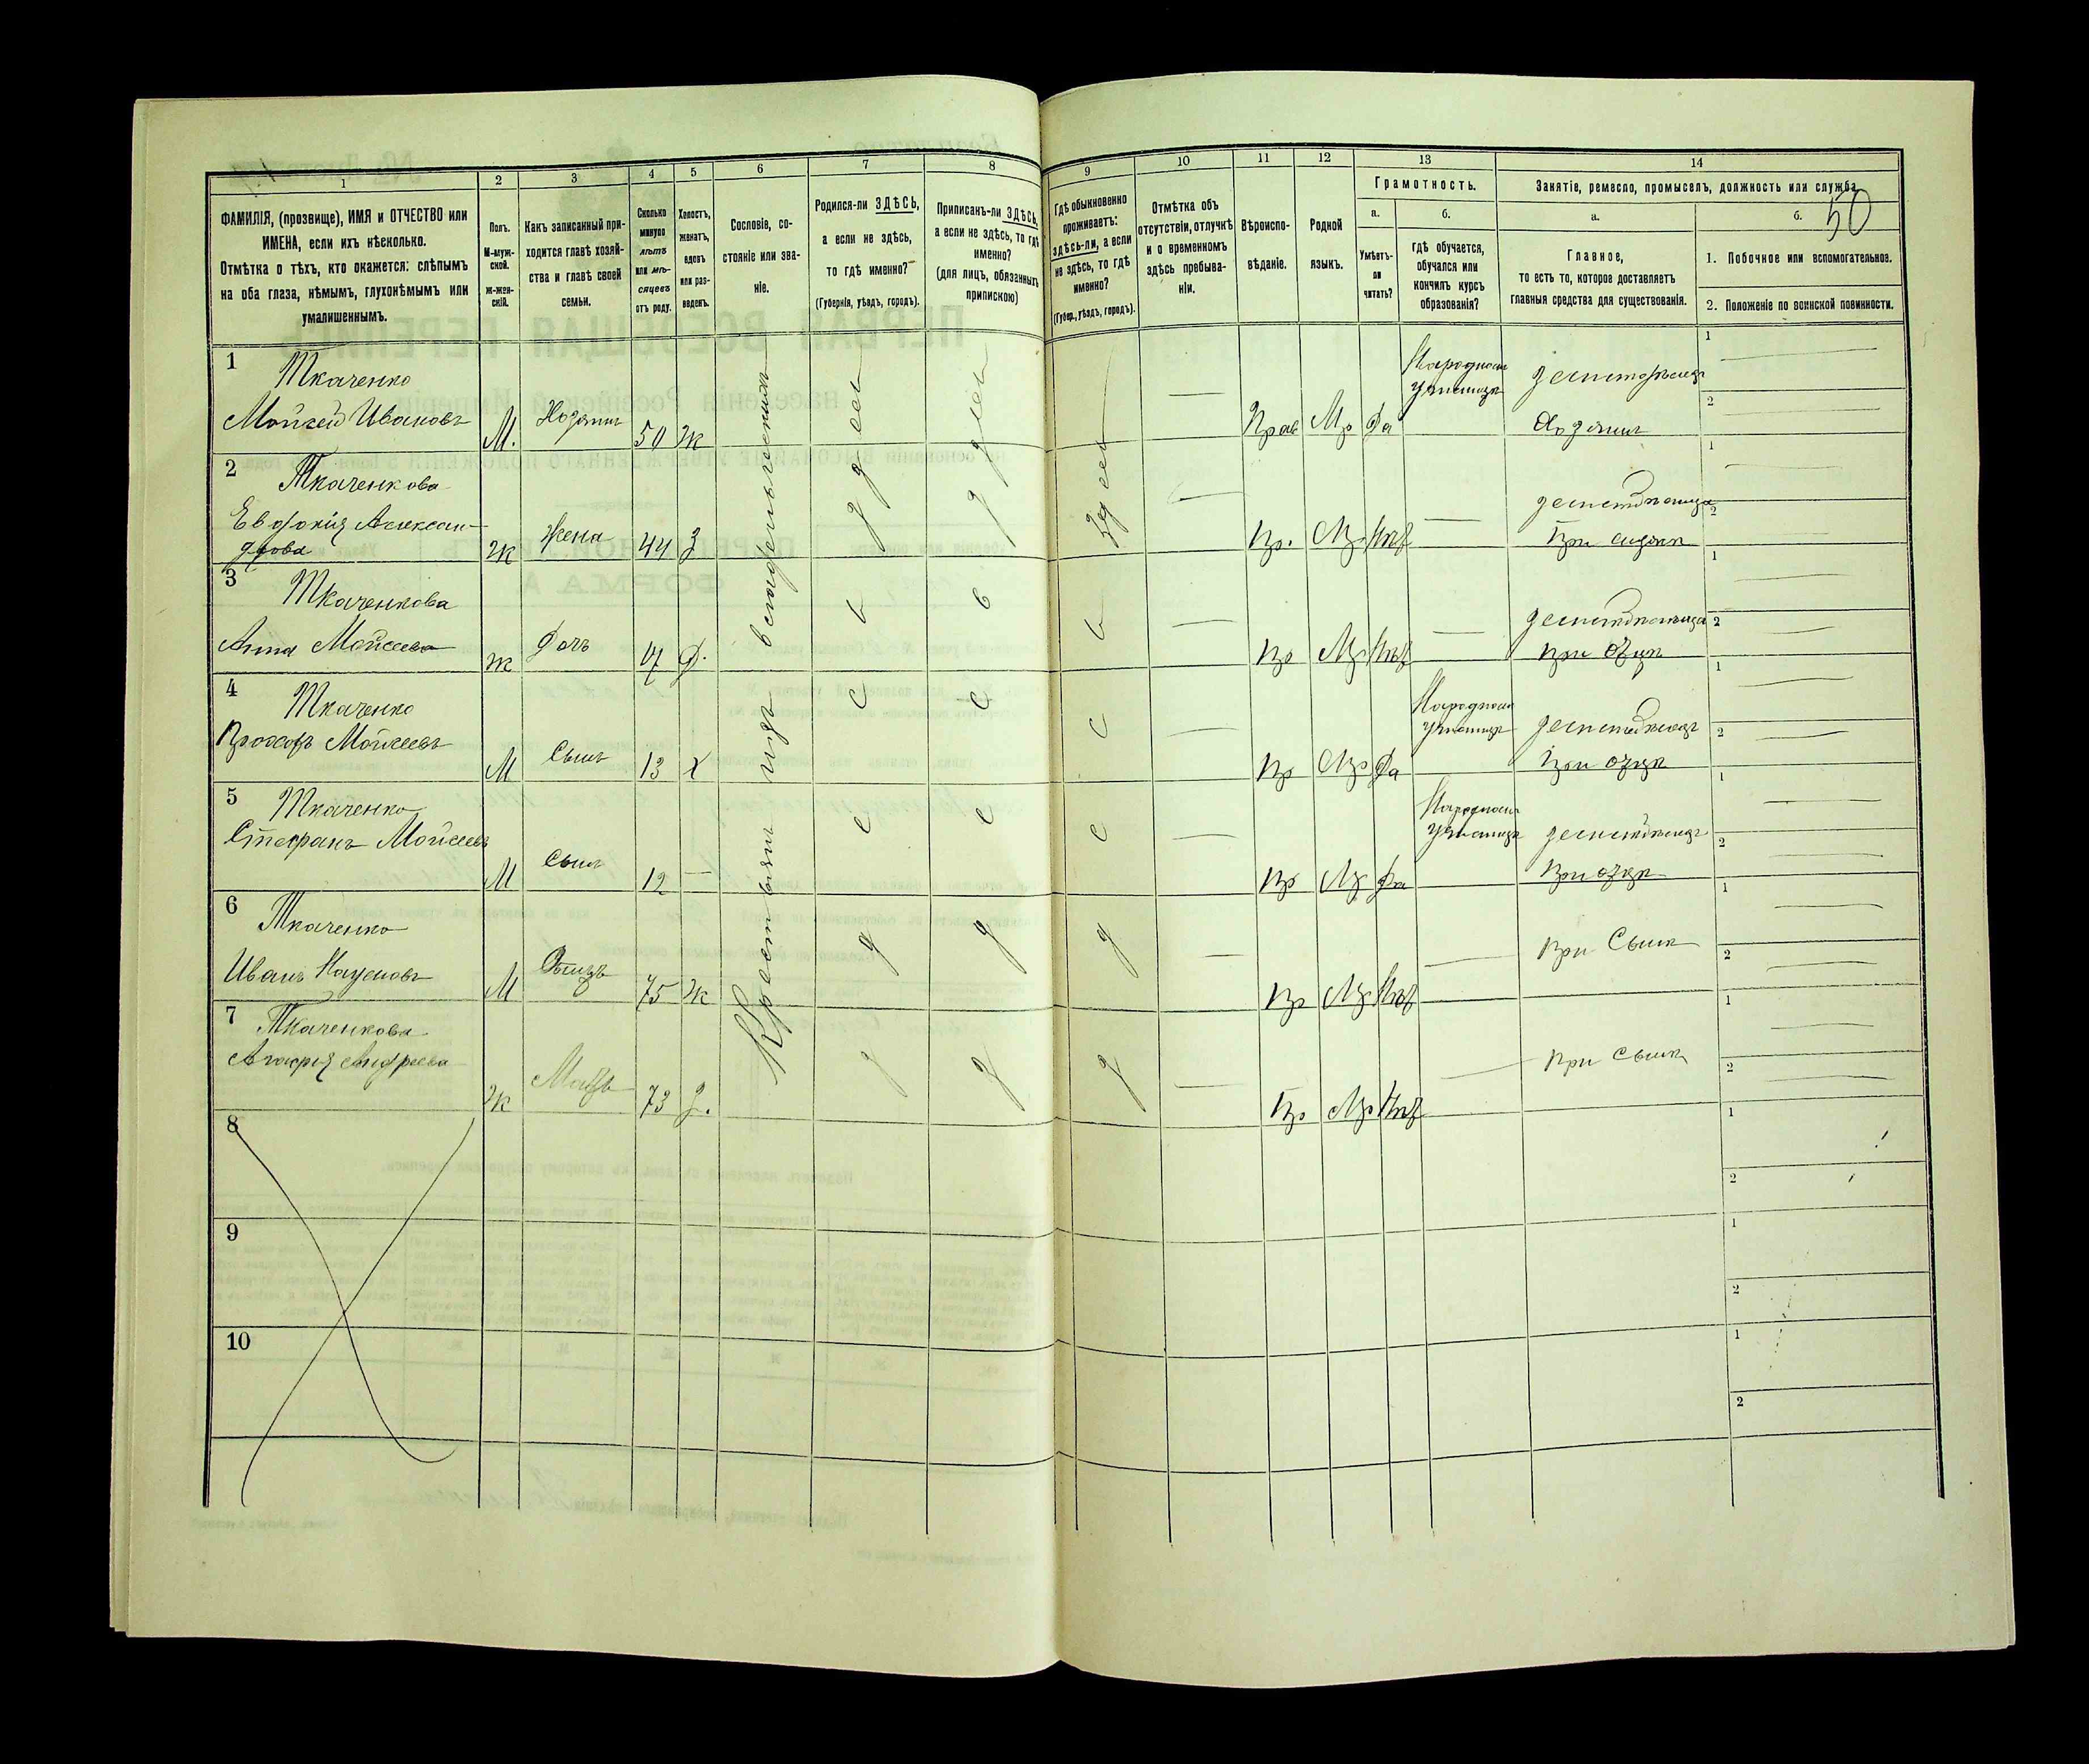 1 2 3 4 5 6 7 8 9 10 11 12 13 14
ФАМИЛІЯ, (прозвище), ИМЯ и ОТЧЕСТВО или
ИМЕНА, если ихъ нѣсколько.
Отмѣтка о тѣхъ, кто окажется: слѣпымъ
на оба глаза, нѣмымъ, глухонѣмымъ или
умалишеннымъ.
Полъ.
М-муж-
ской.
Ж-жен-
скій.
Какъ записанный при-
ходится главѣ хозяй-
ства и главѣ своей
семьи.
Сколько
минуло
лѣтъ
или мѣ-
сяцевъ
отъ роду.
Холостъ,
женатъ,
вдовъ
или раз-
веденъ.
Сословіе, со-
стояніе или зва-
ніе.
Родился-ли ЗДѢСЬ,
а если не здѣсь,
то гдѣ именно?
(Губернія, уѣздъ, городъ).
Приписанъ-ли ЗДѢСЬ,
а если не здѣсь, то гдѣ
именно?
(для лицъ, обязанныхъ
припискою)
Гдѣ обыкновенно
проживаетъ:
здѣсь-ли, а если
не здѣсь, то гдѣ
именно?
(Губер., уѣздъ, городъ).
Отмѣтка объ
отсутствіи, отлучкѣ
и о временномъ
здѣсь пребыва-
ніи.
Вѣроиспо-
вѣданіе.
Родной
языкъ.
Грамотность.
а.
Умѣетъ-
ли
читать?
б.
гдѣ обучается,
обучался или
кончилъ курсъ
образованія?
Занятіе, ремесло, промыселъ, должность или служба.
50
а.
Главное,
то есть то, которое доставляетъ
главныя средства для существованія.
б.
1. Побочное или вспомогательное.
2. Положеніе по воинской повинности.
Крестьянинъ изъ
здесь
здесь
здесь
1 Ткаченко
Мойсей Ивановъ М. Хозяинъ 50 Ж Прав Мр Да
Народном
училищѣ
Хозяинъ
1
2
2 Ткаченкова
Евдокія Алексан-
дрова Ж Жена 44 З Пр. Мр Нѣт
1
2
3 Ткаченкова
Анна Мойсеева Ж Дочь Д. Пр Мр Нѣт
при отцѣ
1
2
4 Ткаченко
Прохоръ Мойсеевъ М Сынъ 13 Х Пр Мр Да
Народном
училищѣ
при отцѣ
1
2
5 Ткаченко
Стефанъ Мойсеевъ М Сынъ 12 Пр Мр Да
Народном
училищѣ
при отцѣ
1
2
6 Ткаченко
Иванъ Наумовъ М Отецъ 75 Ж Пр Мр Нѣт
при Сынѣ
1
2
7 Ткаченкова
Агафія Андреева Ж Мать 73 З. Пр Мр Нѣт
при Сынѣ
1
2
8
1
2
9
1
2
10
1
2